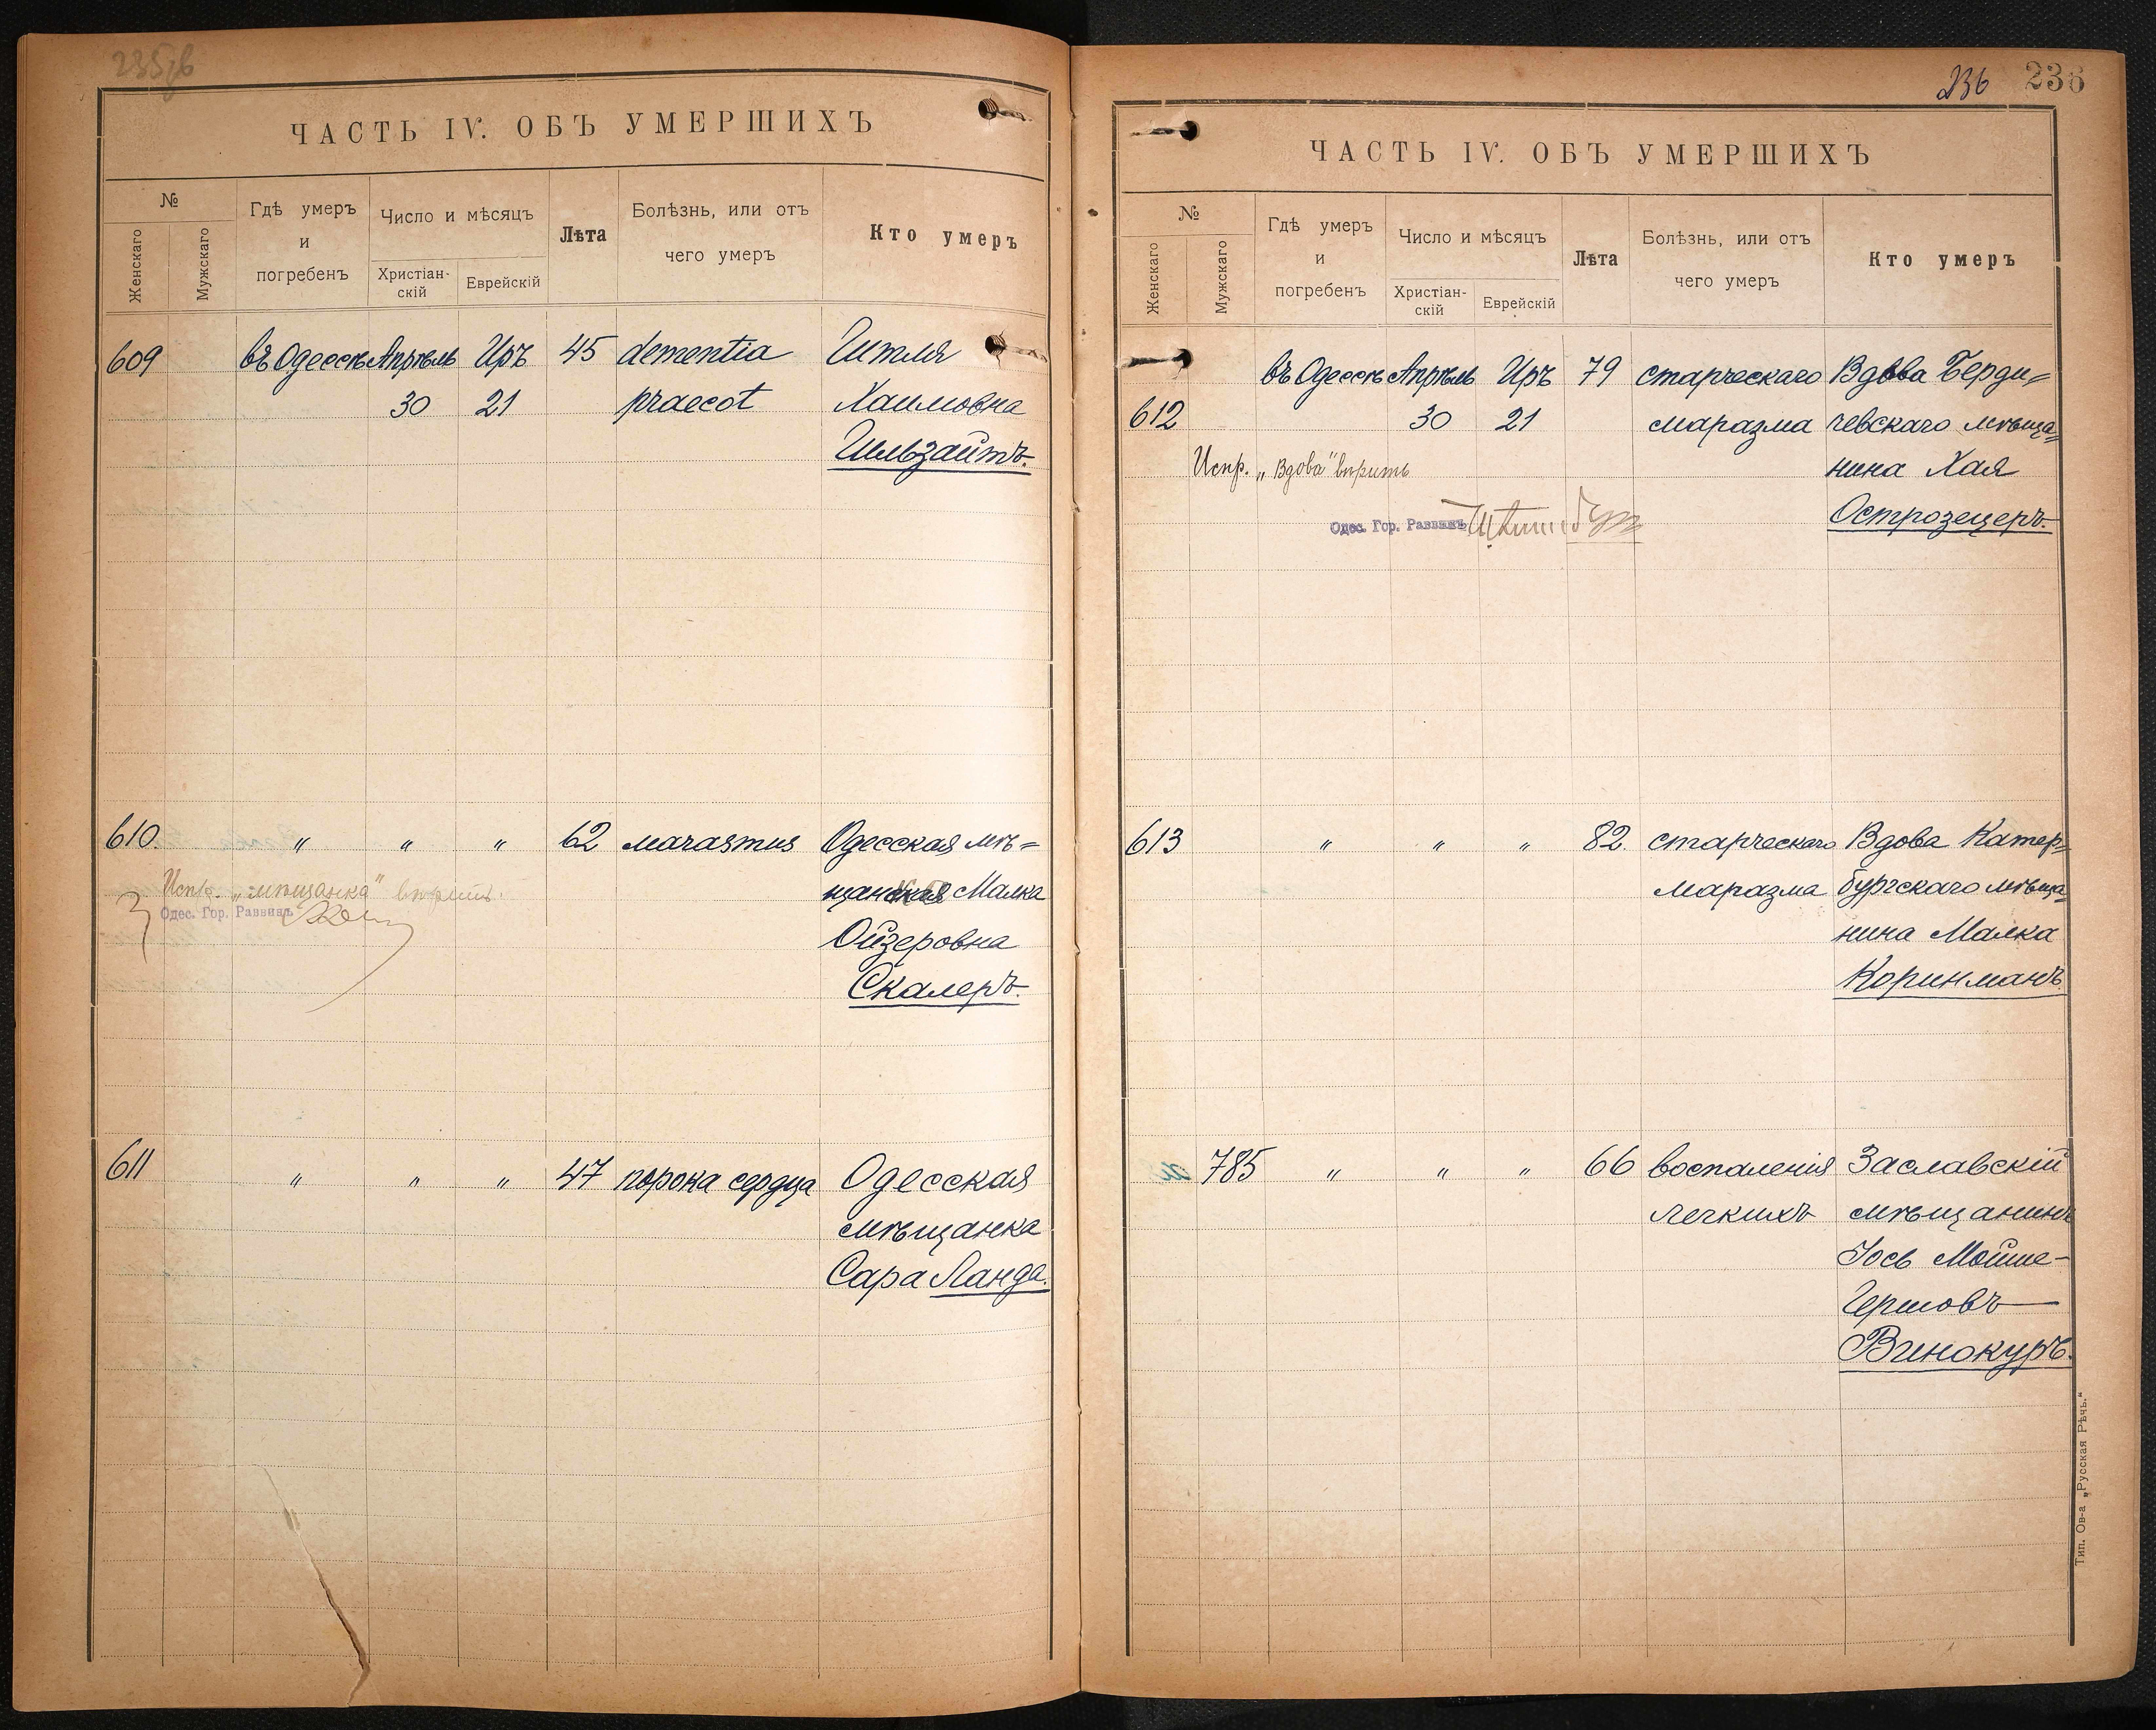 235об
ЧАСТЬ IV. ОБЪ УМЕРШИХЪ
№
Женскаго
Мужскаго
Гдѣ умеръ
и
погребенъ
Число и мѣсяцъ
Христіан-
скій
Еврейскій
Лѣта
Болѣзнь, или отъ
чего умеръ
Кто умеръ
609 въ Одессѣ Апрѣль Иръ 45 dementia Гитля
30 21 praecot Хаимовна
Гильзайтъ.
610. " " " 62 marasmus Одесская мѣ=
щанская Малка
Испр. „мѣщанка" вѣрить.
Одес. Гор. Раввинъ
Ойзеровна
Скалеръ.
611 " " " 47 порока сердца Одесская
мѣщанка
Сара Ланда.
236 236
ЧАСТЬ IV. ОБЪ УМЕРШИХЪ
№
Женскаго
Мужскаго
Гдѣ умеръ
и
погребенъ
Число и мѣсяцъ
Христіан-
скій
Еврейскій
Лѣта
Болѣзнь, или отъ
чего умеръ
Кто умеръ
въ Одессѣ Апрѣль Иръ 79 старческаго Вдова Берди=
612 30 21 маразма чевскаго мѣща=
Испр. „Вдова" вѣрить нина Хая
Одес. Гор. Раввинъ Острозецеръ.
613 " " " 82. старческаго Вдова Катер=
маразма бургскаго мѣща=
нина Малка
Коринманъ.
785 " " " 66 воспаленія Заславскій
легкихъ мѣщанинъ
Іось Мойше-
Гершовъ
Винокуръ.
Тип. Ов-а „Русская Рѣчь."